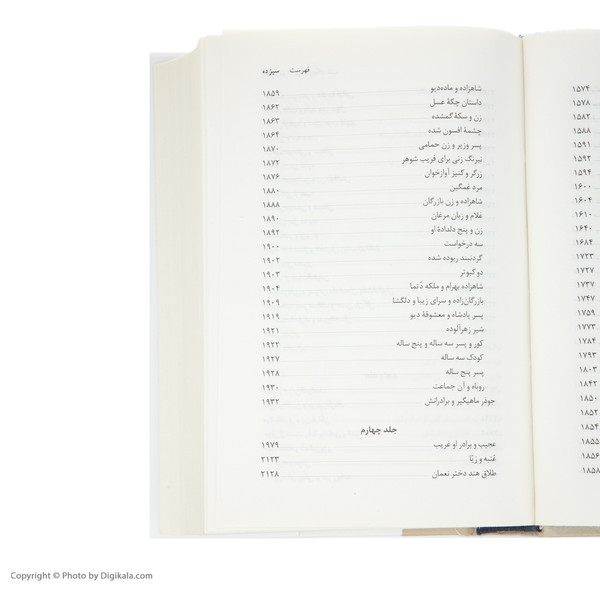 فهرست سیزده
شاهزاده و ماده‌دیو ۱۸۵۹
داستان چکهٔ عسل ۱۸۶۲
زن و سکهٔ گمشده ۱۸۶۳
چشمهٔ افسون شده ۱۸۶۴
پسر وزیر و زن حمامی ۱۸۷۰
نیرنگ زنی برای فریب شوهر ۱۸۷۲
زرگر و کنیز آوازخوان ۱۸۷۶
مرد غمگین ۱۸۸۰
شاهزاده و زن بازرگان ۱۸۸۸
غلام و زبان مرغان ۱۸۹۰
زن و پنج دلدادهٔ او ۱۸۹۲
سه درخواست ۱۹۰۰
گردنبند ربوده شده ۱۹۰۲
دو کبوتر ۱۹۰۳
شاهزاده بهرام و ملکه دَتما ۱۹۰۴
بازرگان‌زاده و سرای زیبا و دلگشا ۱۹۰۹
پسر پادشاه و معشوقهٔ دیو ۱۹۱۹
شیر زهرآلوده ۱۹۲۱
کور و پسر سه ساله و پنج ساله ۱۹۲۲
کودک سه ساله ۱۹۲۷
پسر پنج ساله ۱۹۲۸
روباه و آن جماعت ۱۹۳۰
جوذر ماهیگیر و برادرانش ۱۹۳۲
جلد چهارم
عجیب و برادر او غریب ۱۹۷۹
عُتبه و رَیّا ۲۱۲۳
طلاق هند دختر نعمان ۲۱۲۸
۱۵۷۴
۱۵۷۸
۱۵۸۲
۱۵۸۸
۱۵۹۱
۱۵۹۲
۱۵۹۴
۱۶۰۰
۱۶۰۴
۱۶۱۰
۱۶۴۰
۱۶۸۴
۱۷۲۳
۱۷۲۷
۱۷۳۷
۱۷۴۷
۱۷۵۹
۱۷۷۳
۱۷۸۴
۱۷۹۳
۱۸۰۳
۱۸۴۲
۱۸۵۰
۱۸۵۲
۱۸۵۴
۱۸۵۵
۱۸۵۶
۱۸۵۸
Copyright © Photo by Digikala.com